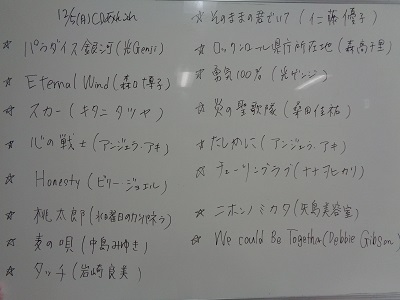 12/5(月)
☆ パラダイス銀河(光Genji)
☆ Eternal Wind(森口博子)
☆ スカー(キタニタツヤ)
☆ 心の戦士(アンジェラ・アキ)
☆ Honesty(ビリー・ジョエル)
☆ 桃太郎(水曜日のカンパネラ)
☆ 麦の唄(中島みゆき)
☆ タッチ(岩崎良美)
☆ そのままの君でいて(仁藤優子)
☆ ロックンロール県庁所在地(森高千里)
☆ 勇気100%(光ゲンジ)
☆ 炎の聖歌隊(桑田佳祐)
☆ たしかに(アンジェラ・アキ)
☆ チューイングラブ(ナナヲヒカリ)
☆ ニホンノミカタ(矢島美容室)
☆ We could Be Together(Debbie Gibson)